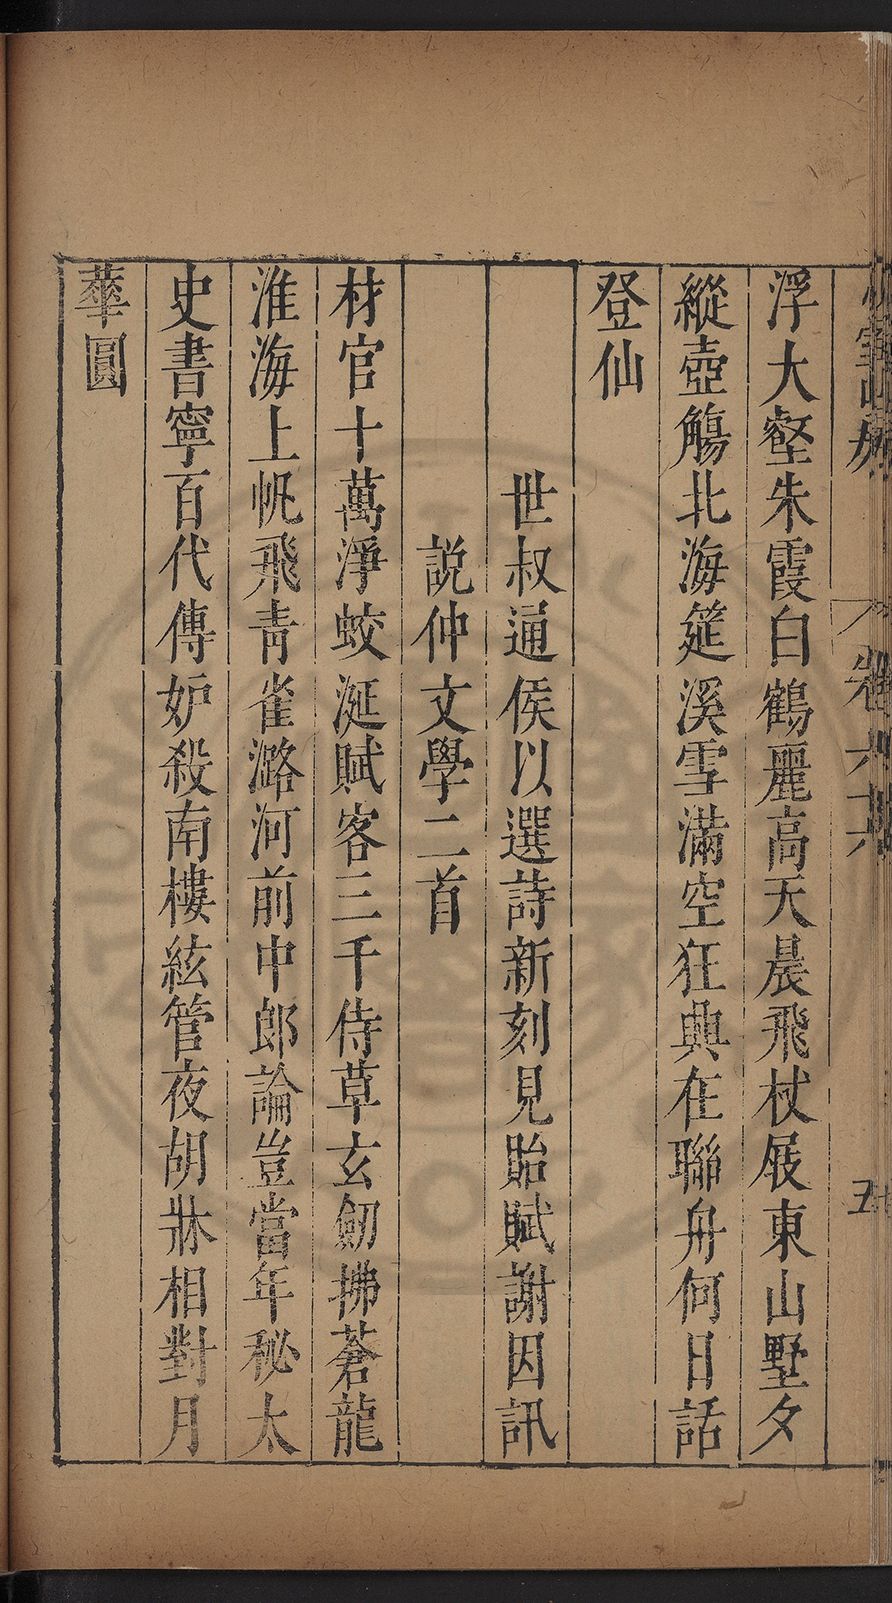 浮大壑朱霞白鶴麗高天晨飛杖屐東山墅夕
縱壺觴北海筵溪雪滿空狂興在聯舟何日話
登仙
世叔通侯以選詩新刻見貽賦謝因訊
説仲文學二首
材官十萬淨蛟涎賦客三千侍草玄劒拂蒼龍
淮海上帆飛青雀潞河前中郎論豈當年秘太
史書寧百代傳妒殺南樓絃管夜胡牀相對月
華圓